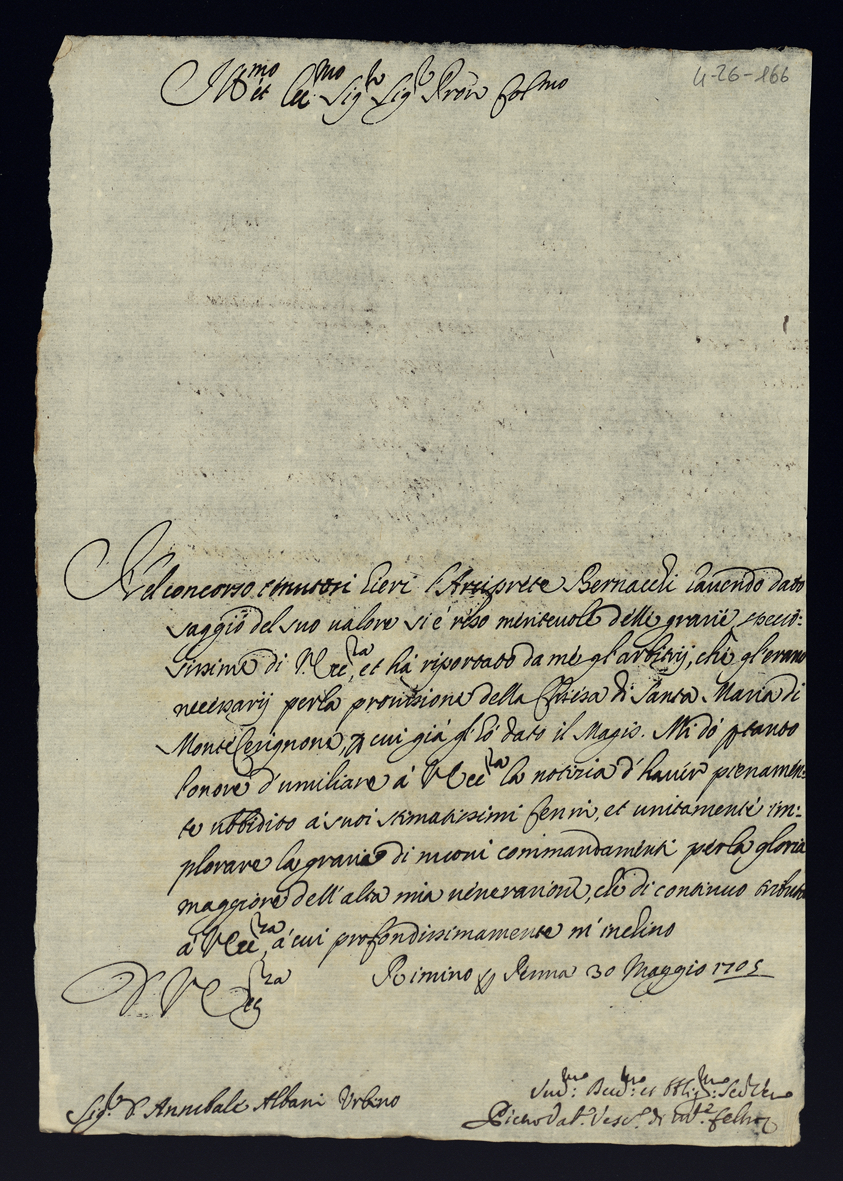 4-26-166
Ill^mo et Ecc^mo Sig^re Sig^re Pron Col^mo
Nel concorso tenutosi hieri l'Arciprete Bernacchi havendo dato
saggio del suo valore si è reso meritevole delle gratie, specio:
sissime di V. Ecc^za, et hà riportato da mè gl'arbitrij, chè gl'erano
necessarij per la provisione della Chiesa di Santa Maria di
Monte Cerignone, à cui già gl'hò dato il Magis. Mi dò ptanto
l'onore d'umiliare à V. Ecc^za la notizia d'haver pienamen:
te ubbidito à suoi stimatissimi cenni, et unitamente im:
plorare la gratia di nuovi commandamenti per la gloria
maggiore dell'alta mia veneratione, chè di continuo tributa
à V. Ecc^za, à cui profondissimamente m'inchino
D. V. Ecc^za
Rimino p Penna 30 Maggio 1705
Sig.^r D. Annibale Albani Urbino
Um^mo Dev^mo et Obblig^mo Ser^re Vero
Pietro Vesc.^o di M.^te Feltro